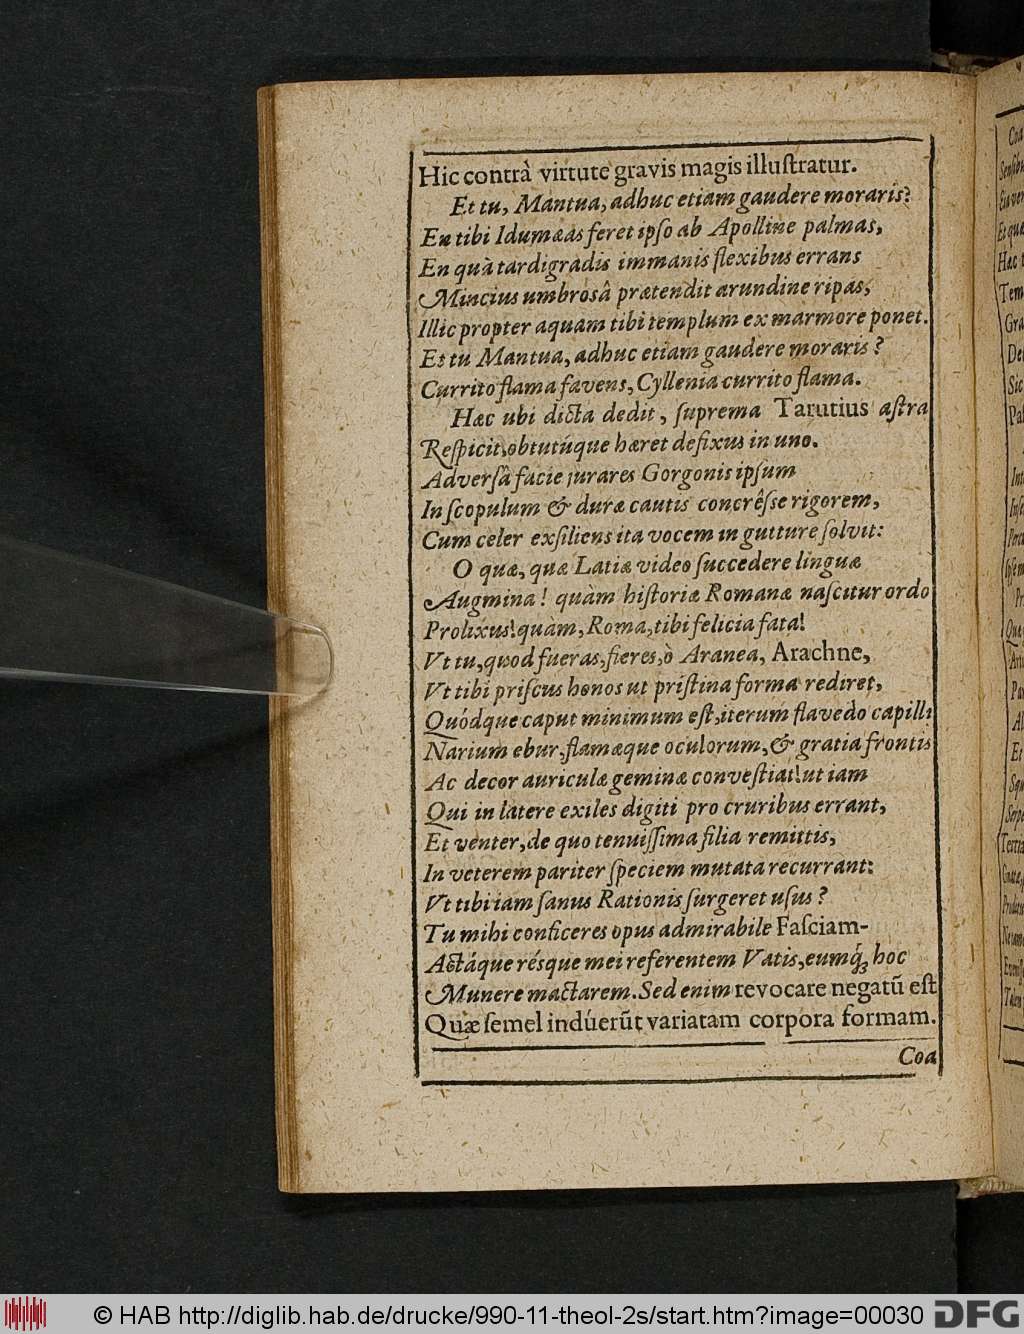 Hic contrà virtute gravis magis illuſtratur.
Et tu, Mantua, adhuc etiam gaudere moraris?
En tibi Idumæas feret ipſo ab Apolline palmas,
En quà tardigradis immanis flexibus errans
Mincius umbrosâ prætendit arundine ripas,
Illic propter aquam tibi templum ex marmore ponet.
Et tu Mantua, adhuc etiam gaudere moraris?
Currito flama favens, Cyllenia currito flama.
Hæc ubi dicta dedit, ſuprema Tarutius aſtra
Reſpicit, obtutúque hæret defixus in uno.
Adverſâ facie jurares Gorgonis ipſum
In ſcopulum & duræ cautis concrêſse rigorem,
Cum celer exſiliens ita vocem in gutture ſolvit:
O quæ, quæ Latiæ video ſuccedere linguæ
Augmina! quàm hiſtoriæ Romanæ naſcitur ordo
Prolixus! quàm, Roma, tibi felicia fata!
Vt tu, quod fueras, fieres, ò Aranea, Arachne,
Vt tibi priſcus honos ut priſtina forma rediret,
Quódque caput minimum eſt, iterum flavedo capilli
Narium ebur, flamæque oculorum, & gratia frontis
Ac decor auriculæ geminæ conveſtiat! ut iam
Qui in latere exiles digiti pro cruribus errant,
Et venter, de quo tenuiſſima filia remittis,
In veterem pariter ſpeciem mutata recurrant:
Vt tibi iam ſanus Rationis ſurgeret uſus?
Tu mihi conficeres opus admirabile Faſciam-
Actáque résque mei referentem Vatis, eumq́; hoc
Munere mactarem. Sed enim revocare negatũ eſt
Quæ ſemel indúerũt variatam corpora formam.
Coa
© HAB http://diglib.hab.de/drucke/990-11-theol-2s/start.htm?image=00030 DFG